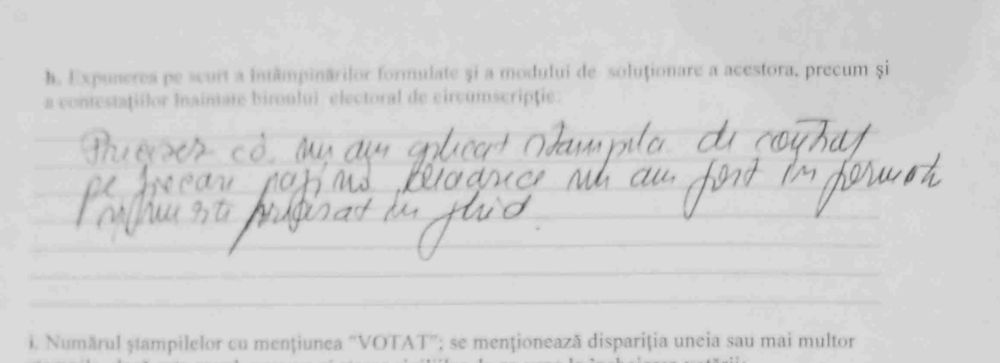 h. Expunerea pe scurt a întâmpinărilor formulate şi a modului de soluţionare a acestora, precum şi
a contestaţiilor înaintate biroului electoral de circumscripţie:
că nu am aplicat ștampila de control
pe fiecare pagină deoarece nu am fost informată
nu este în ghid.
i. Numărul ştampilelor cu menţiunea "VOTAT"; se menţionează dispariţia uneia sau mai multor